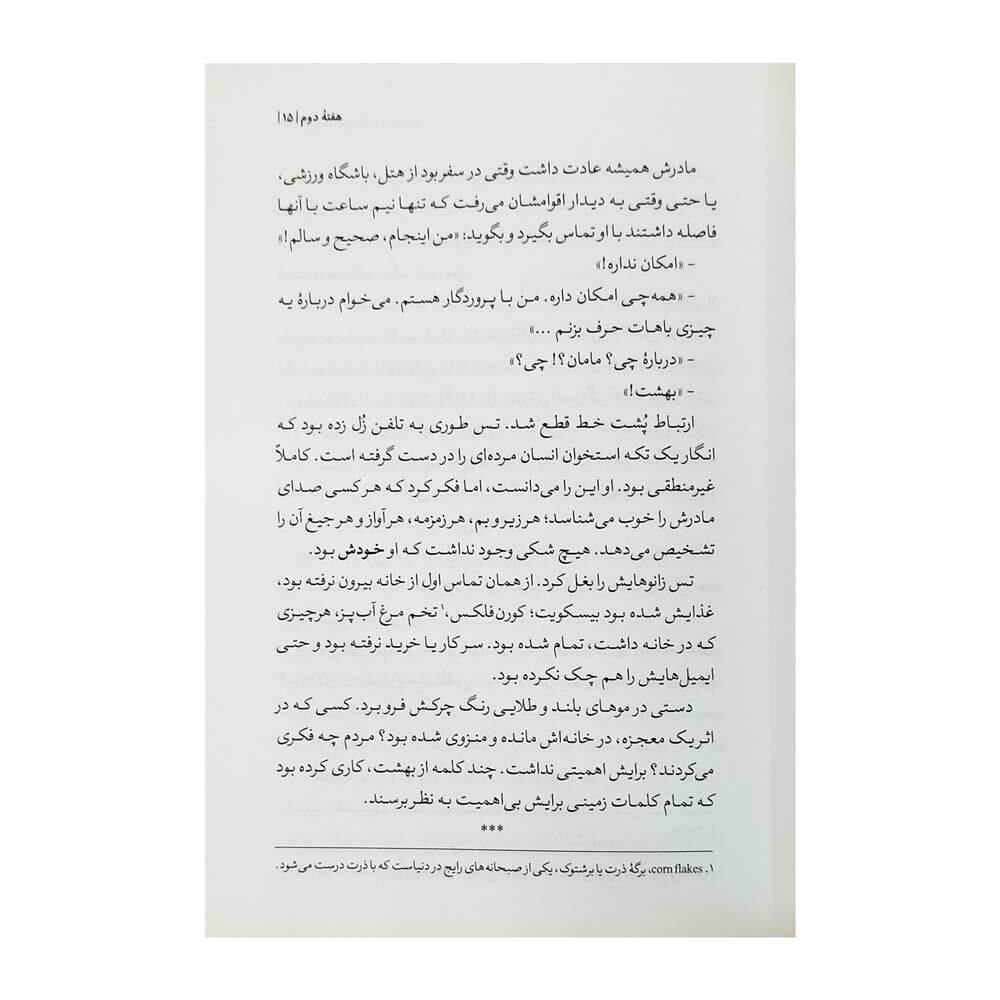 هفتهٔ دوم | ۱۵ |
مادرش همیشه عادت داشت وقتی در سفر بود از هتل، باشگاه ورزشی،
یا حتی وقتی به دیدار اقوامشان می‌رفت که تنها نیم ساعت با آنها
فاصله داشتند با او تماس بگیرد و بگوید: «من اینجام، صحیح و سالم!»
- «امکان نداره!»
- «همه‌چی امکان داره. من با پروردگار هستم. می‌خوام دربارهٔ یه
چیزی باهات حرف بزنم ...»
- «دربارهٔ چی؟ مامان؟! چی؟»
- «بهشت!»
ارتباط پُشت خط قطع شد. تس طوری به تلفن زُل زده بود که
انگار یک تکه استخوان انسان مرده‌ای را در دست گرفته است. کاملاً
غیرمنطقی بود. او این را می‌دانست، اما فکر کرد که هر کسی صدای
مادرش را خوب می‌شناسد؛ هر زیر و بم، هر زمزمه، هر آواز و هر جیغ آن را
تشخیص می‌دهد. هیچ شکی وجود نداشت که او خودش بود.
تس زانوهایش را بغل کرد. از همان تماس اول از خانه بیرون نرفته بود،
غذایش شده بود بیسکویت؛ کورن‌فلکس،۱ تخم مرغ آب‌پز، هرچیزی
که در خانه داشت، تمام شده بود. سر کار یا خرید نرفته بود و حتی
ایمیل‌هایش را هم چک نکرده بود.
دستی در موهای بلند و طلایی رنگ چرکش فرو برد. کسی که در
اثر یک معجزه، در خانه‌اش مانده و منزوی شده بود؟ مردم چه فکری
می‌کردند؟ برایش اهمیتی نداشت. چند کلمه از بهشت، کاری کرده بود
که تمام کلمات زمینی برایش بی‌اهمیت به نظر برسند.
***
۱. corn flakes، برگهٔ ذرت یا برشتوک، یکی از صبحانه‌های رایج در دنیاست که با ذرت درست می‌شود.